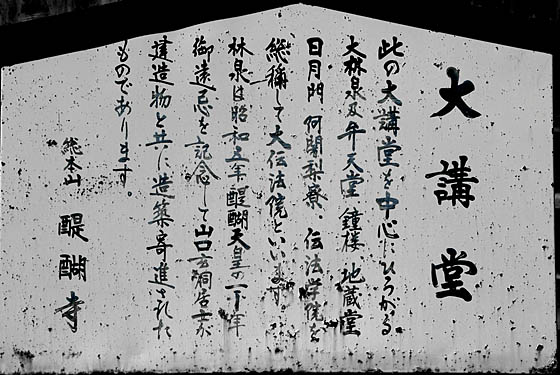 大講堂
此の大講堂を中心にひろがる
大林泉及弁天堂、鐘楼、地蔵堂
日月門、阿闍梨寮、伝法学院を
総稱して大伝法院といいます。
林泉は昭和五年醍醐天皇の一千年
御遠忌を記念して山口玄洞居士が
建造物と共に造築寄進された
ものであります。
総本山 醍醐寺